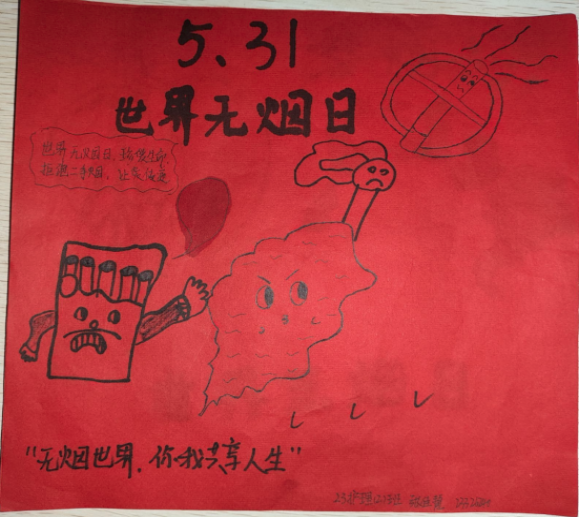 5、31
世界无烟日
世界无烟日，珍惜生命
拒绝二手烟，让爱
"无烟世界，你我共享人生"
23护理